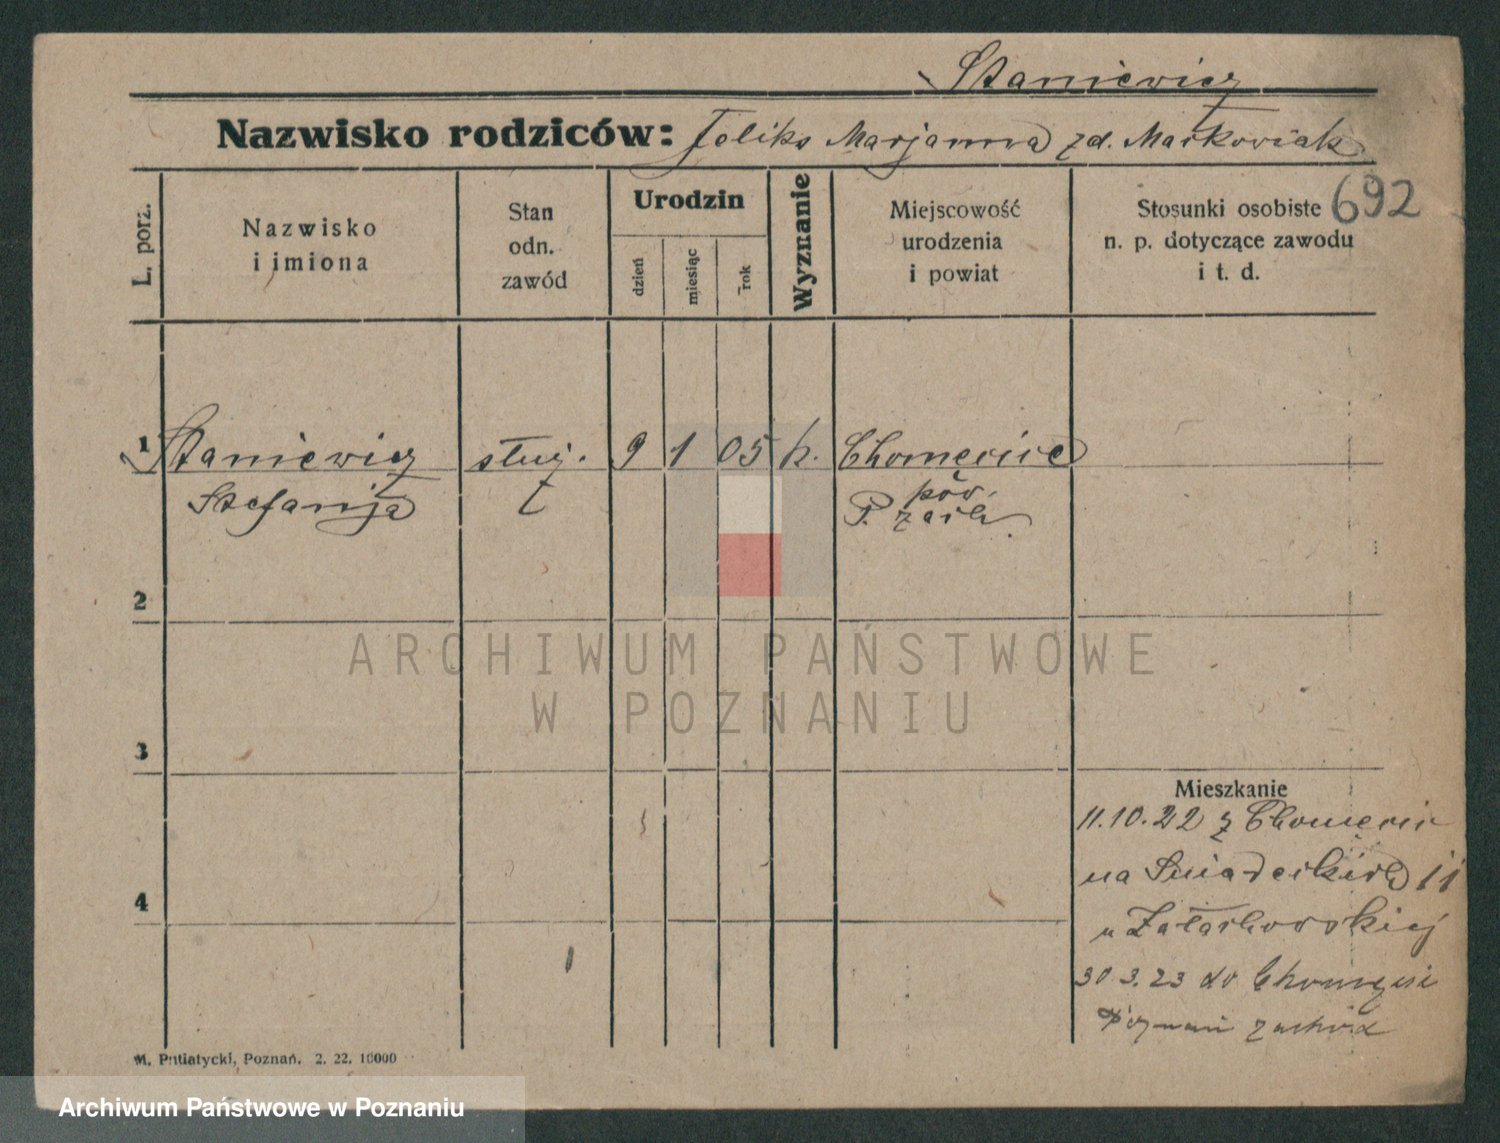 Staniewicz
Nazwisko rodziców: Feliks Marjanna zd. Markowiak
692
L. porz.
Nazwisko
i imiona
Stan
odn.
zawód
Urodzin
dzień
miesiąc
rok
Wyznanie
Miejscowość
urodzenia
i powiat
Stosunki osobiste
n. p. dotyczące zawodu
i t. d.
1 Staniewicz służ. 9 1 05 k. Chomęcice
Stefanja pow.
P. zach.
2
3
4
ARCHIWUM PAŃSTWOWE
W POZNANIU
Mieszkanie
11.10.22 z Chomęcic
na Śniadeckich 11
u Załachowskiej
30.3.23 do Chomęcic
Poznań zachód
M. Putiatycki, Poznań. 2. 22. 10000
Archiwum Państwowe w Poznaniu